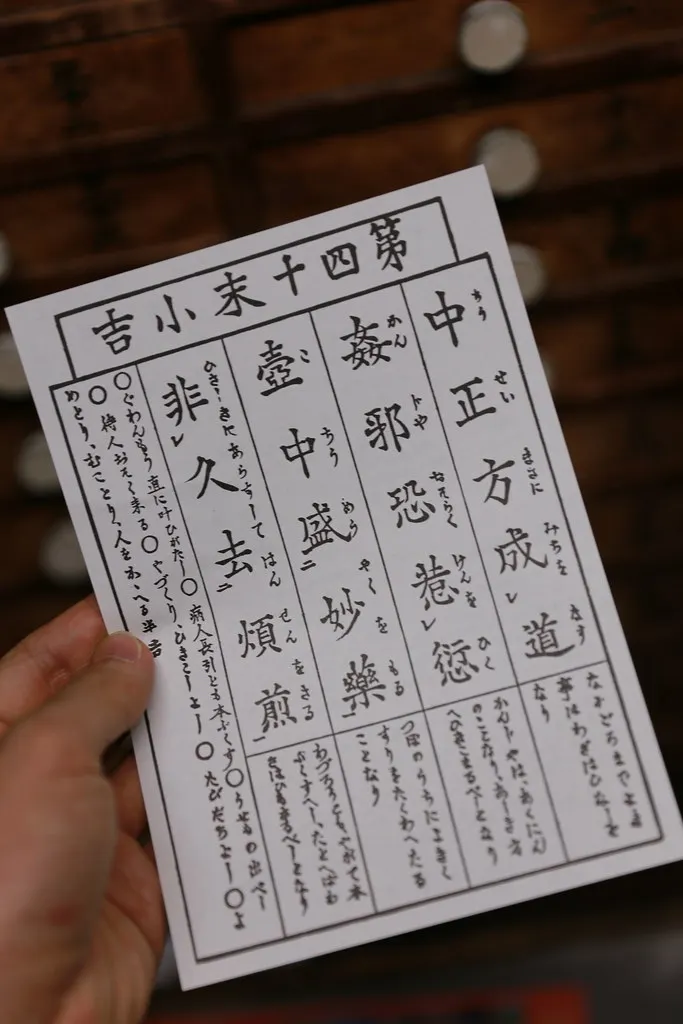 第四十末小吉
中正方成レ道
ちう せい まさに みちを なす
姦邪恐惹レ愆
かん じや おそらく けんを ひく
壺中盛二妙薬一
こ ちう めう やくを もる
非レ久去二煩煎一
ひさしきに あらずして はん せんを さる
なり
かんじやは、あくにん
のことなり、あしき方
へひきこまるべしとなり
つぼのうちによきく
すりをたくわへたる
ことなり
わづろうとも、やがて本
ぶくすへし、たとへばわ
○ぐわんもう 直に叶ひがたし○病人長引とも本ぶくす○うせもの出べし
○待人おそく来る○やづくり、ひきこしよし○たびだちよし○よ
めとり、むことり、人をかゝへる半吉